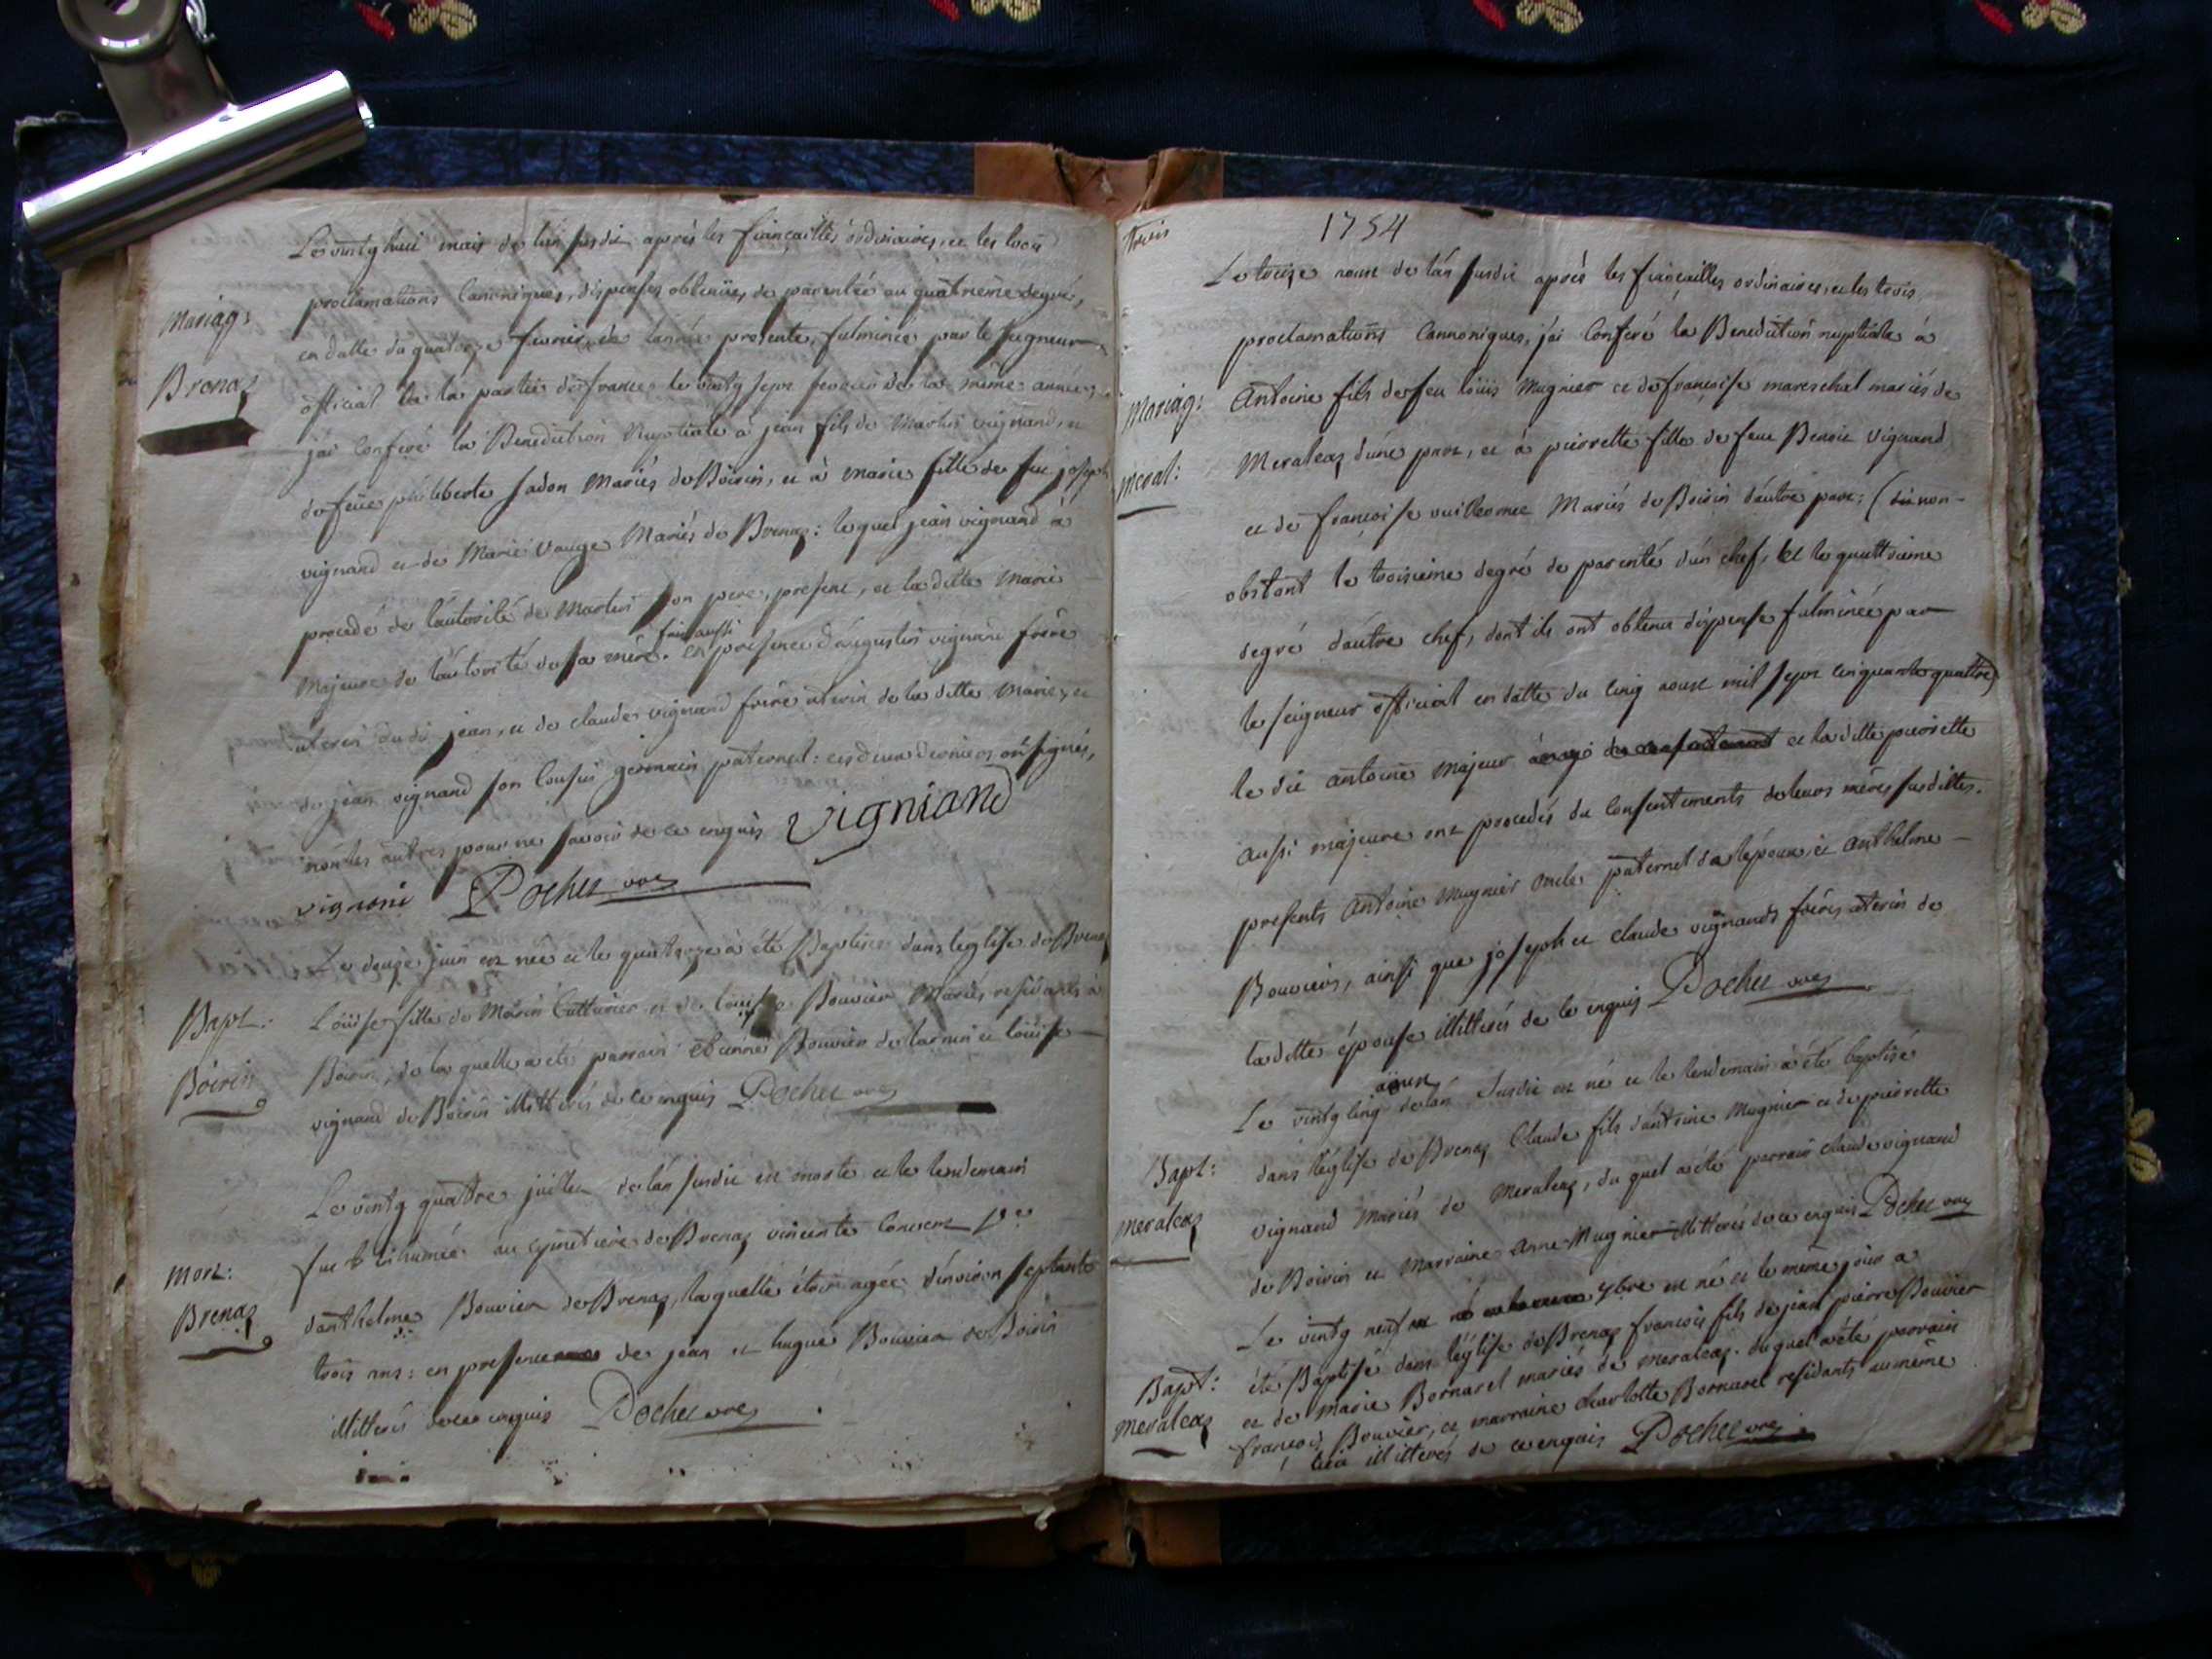 Le vingt huit mais de l'an susdit après les fiançailles ordinaires, et les trois
proclamations Canoniques, dispenses obtenües de parentée au quatrieme degré,
Mariag:
en datte du quatorze fevrier de l'année presente, fulminée par le seigneur
Brenaz
official de la partie de france le vingt sept fevrier de la même année,
j'ai conferé la Benediction Nuptiale à jean fils de Martin vignand, et
de feüe philiberte Jadon Mariés de Boirin, et à marie fille de feu joseph
vignand et de Marie Vauge Mariés de Brenaz: lequel jean vignand à
procedé de l'autorité de Martin son pere, present, et la ditte Marie
Majeure de l'autorité de sa mère. fait aussi en presence d'augustin vignand frère
uterin dudit jean, et de claude vignand frère uterin de la ditte Marie, et
de jean vignand son Cousin germain paternel: ces deux derniers ont signés,
non les autres pour ne savoir de ce enquis Vigniand
vignant Pochet vre
Le douze juin est née et le quatorze à été Baptisée dans leglise de Brenaz
Bapt:
Loüise fille de Morin Cutturier et de louise Bouvier Mariés residants à
Boirin
Boirin, de laquelle a été parrain etienne Bouvier de larnin et loüise
vignand de Boirin illitterés de ce enquis Pochet vre
Le vingt quattre juillet de l'an susdit est morte et le lendemain
fut inhumée au cymetiere de Brenaz vincente Convert
Mort:
Brenaz
d'anthelme Bouvier de Brenaz, laquelle étoit agée d'environ septante
trois ans: en presence de jean et hugue Bouvier de Boirin
illitterés de ce enquis Pochet vre
trois
1754
Le treize aoust de l'an susdit après les fiançailles ordinaires, et les trois
proclamations Cannoniques, j'ai Conferé la Benediction nuptiale à
Mariag:
Antoine fils de feu loüis Mugnier et de françoise mareschal mariés de
Meral:
Meraleaz d'une part, et à pierrette fille de feu Benoit Vignand
et de françoise vuillermet Mariés de Boirin d'autre part: ( non-
obstant le troisieme degré de parenté d'un chef, et le quattrieme
degré d'autre chef, dont ils ont obtenu dispense fulminée par
le seigneur official en datte du cinq aoust mil sept cinquante quattre)
le dit antoine Majeur et la ditte pierrette
aussi majeure ont procedés du Consentements de leurs mères susdittes.
presents Antoine Mugnier oncle paternel de l'epoux, et anthelme
Bouvier, ainsi que joseph et claude vignands frères uterin de
la ditte épouse illitterés de ce enquis Pochet vre
Le vingt cinq aoust de l'an Susdit est né et le lendemain à été baptisé
Bapt:
dans l'église de Brenaz Claude fils d'antoine Mugnier et de pierrette
Meraleaz
vignand Mariés de Meraleaz, du quel a été parrain claude vignand
de Boirin et Marraine Anne Mugnier illitterés de ce enquis Pochet vre
Le vingt neuf 9bre est né et le même jour a
Bapt:
été Baptisé dans l'église de Brenaz francois fils de jean pierre Bouvier
Meraleaz
et de marie Bornarel mariés de meraleaz. duquel a été parrain
françois Bouvier, et marraine charlotte Bornarel residants au même
lieu illitterés de ce enquis Pochet vre